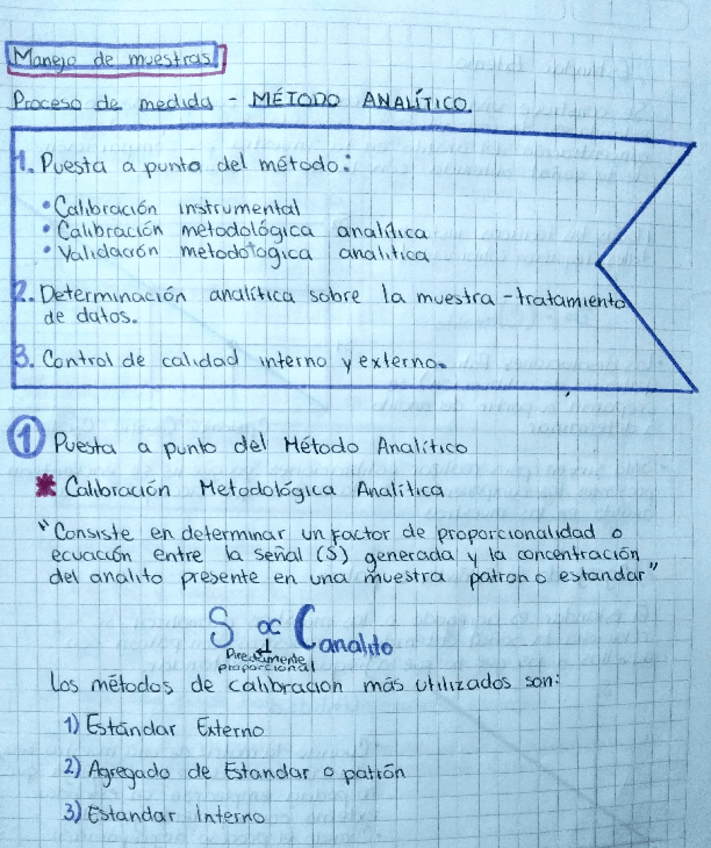 Manejo de muestras
Proceso de medida - MÉTODO ANALÍTICO.
1. Puesta a punto del método:
• Calibración instrumental
• Calibración metodológica analítica
• Validación metodologica analitica
2. Determinación analítica sobre la muestra - tratamiento
de datos.
3. Control de calidad interno y externo.
1 Puesta a punto del Método Analítico
* Calibración Metodológica Analítica
"Consiste en determinar un factor de proporcionalidad o
ecuación entre la señal (S) generada y la concentración
del analito presente en una muestra patron o estandar"
S ∝ Canalito
↳ Directamente
proporcional
Los métodos de calibracion más utilizados son:
1) Estándar Externo
2) Agregado de Estandar o patrón
3) Estandar Interno